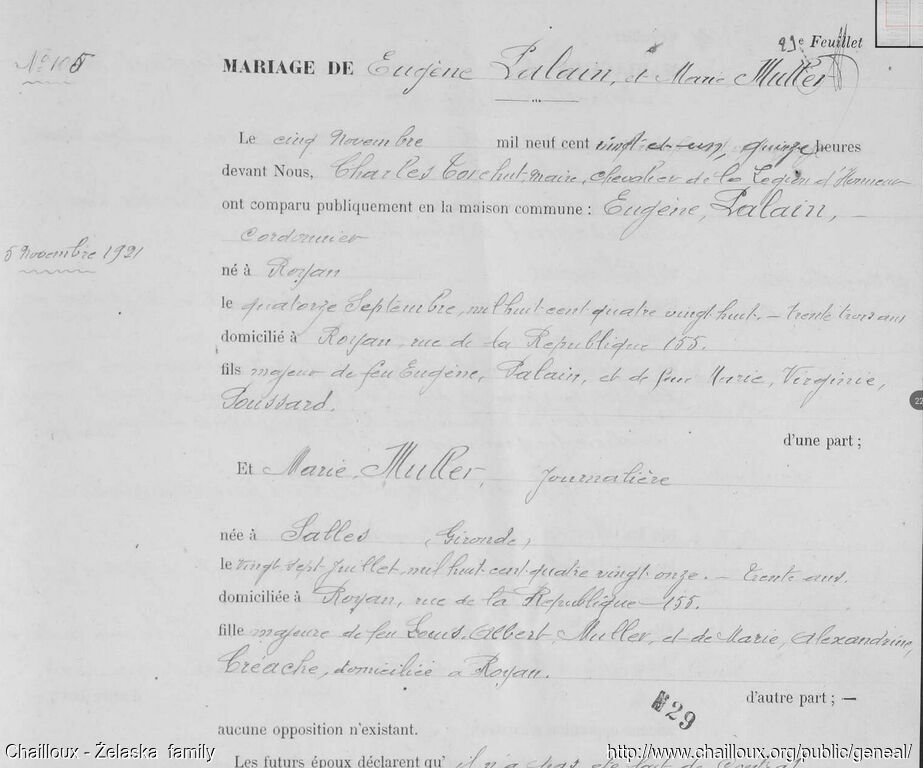 29e Feuillet
N° 105
MARIAGE DE Eugène Palain, et Marie Muller
Le cinq Novembre mil neuf cent vingt-et-un, quinze heures
devant Nous, Charles Torchut, maire, chevalier de la Légion d'Honneur
ont comparu publiquement en la maison commune : Eugène, Palain, —
cordonnier
5 Novembre 1921
né à Royan
le quatorze Septembre, mil huit cent quatre vingt huit. — trente trois ans
domicilié à Royan, rue de la République 155.
fils majeur de feu Eugène, Palain, et de feue Marie, Virginie,
Poussard.
d'une part ;
Et Marie, Muller, Journalière
née à Salles (Gironde)
le vingt sept Juillet, mil huit cent quatre vingt onze. — trente ans.
domiciliée à Royan, rue de la République — 155.
fille majeure de feu Louis, Albert, Muller, et de Marie, Alexandrine,
Créache, domiciliée à Royan.
d'autre part ; —
N 29
aucune opposition n'existant.
Les futurs époux déclarent qu' il n'a pas été fait de contrat
Chailloux - Żelaska family
http://www.chailloux.org/public/geneal/